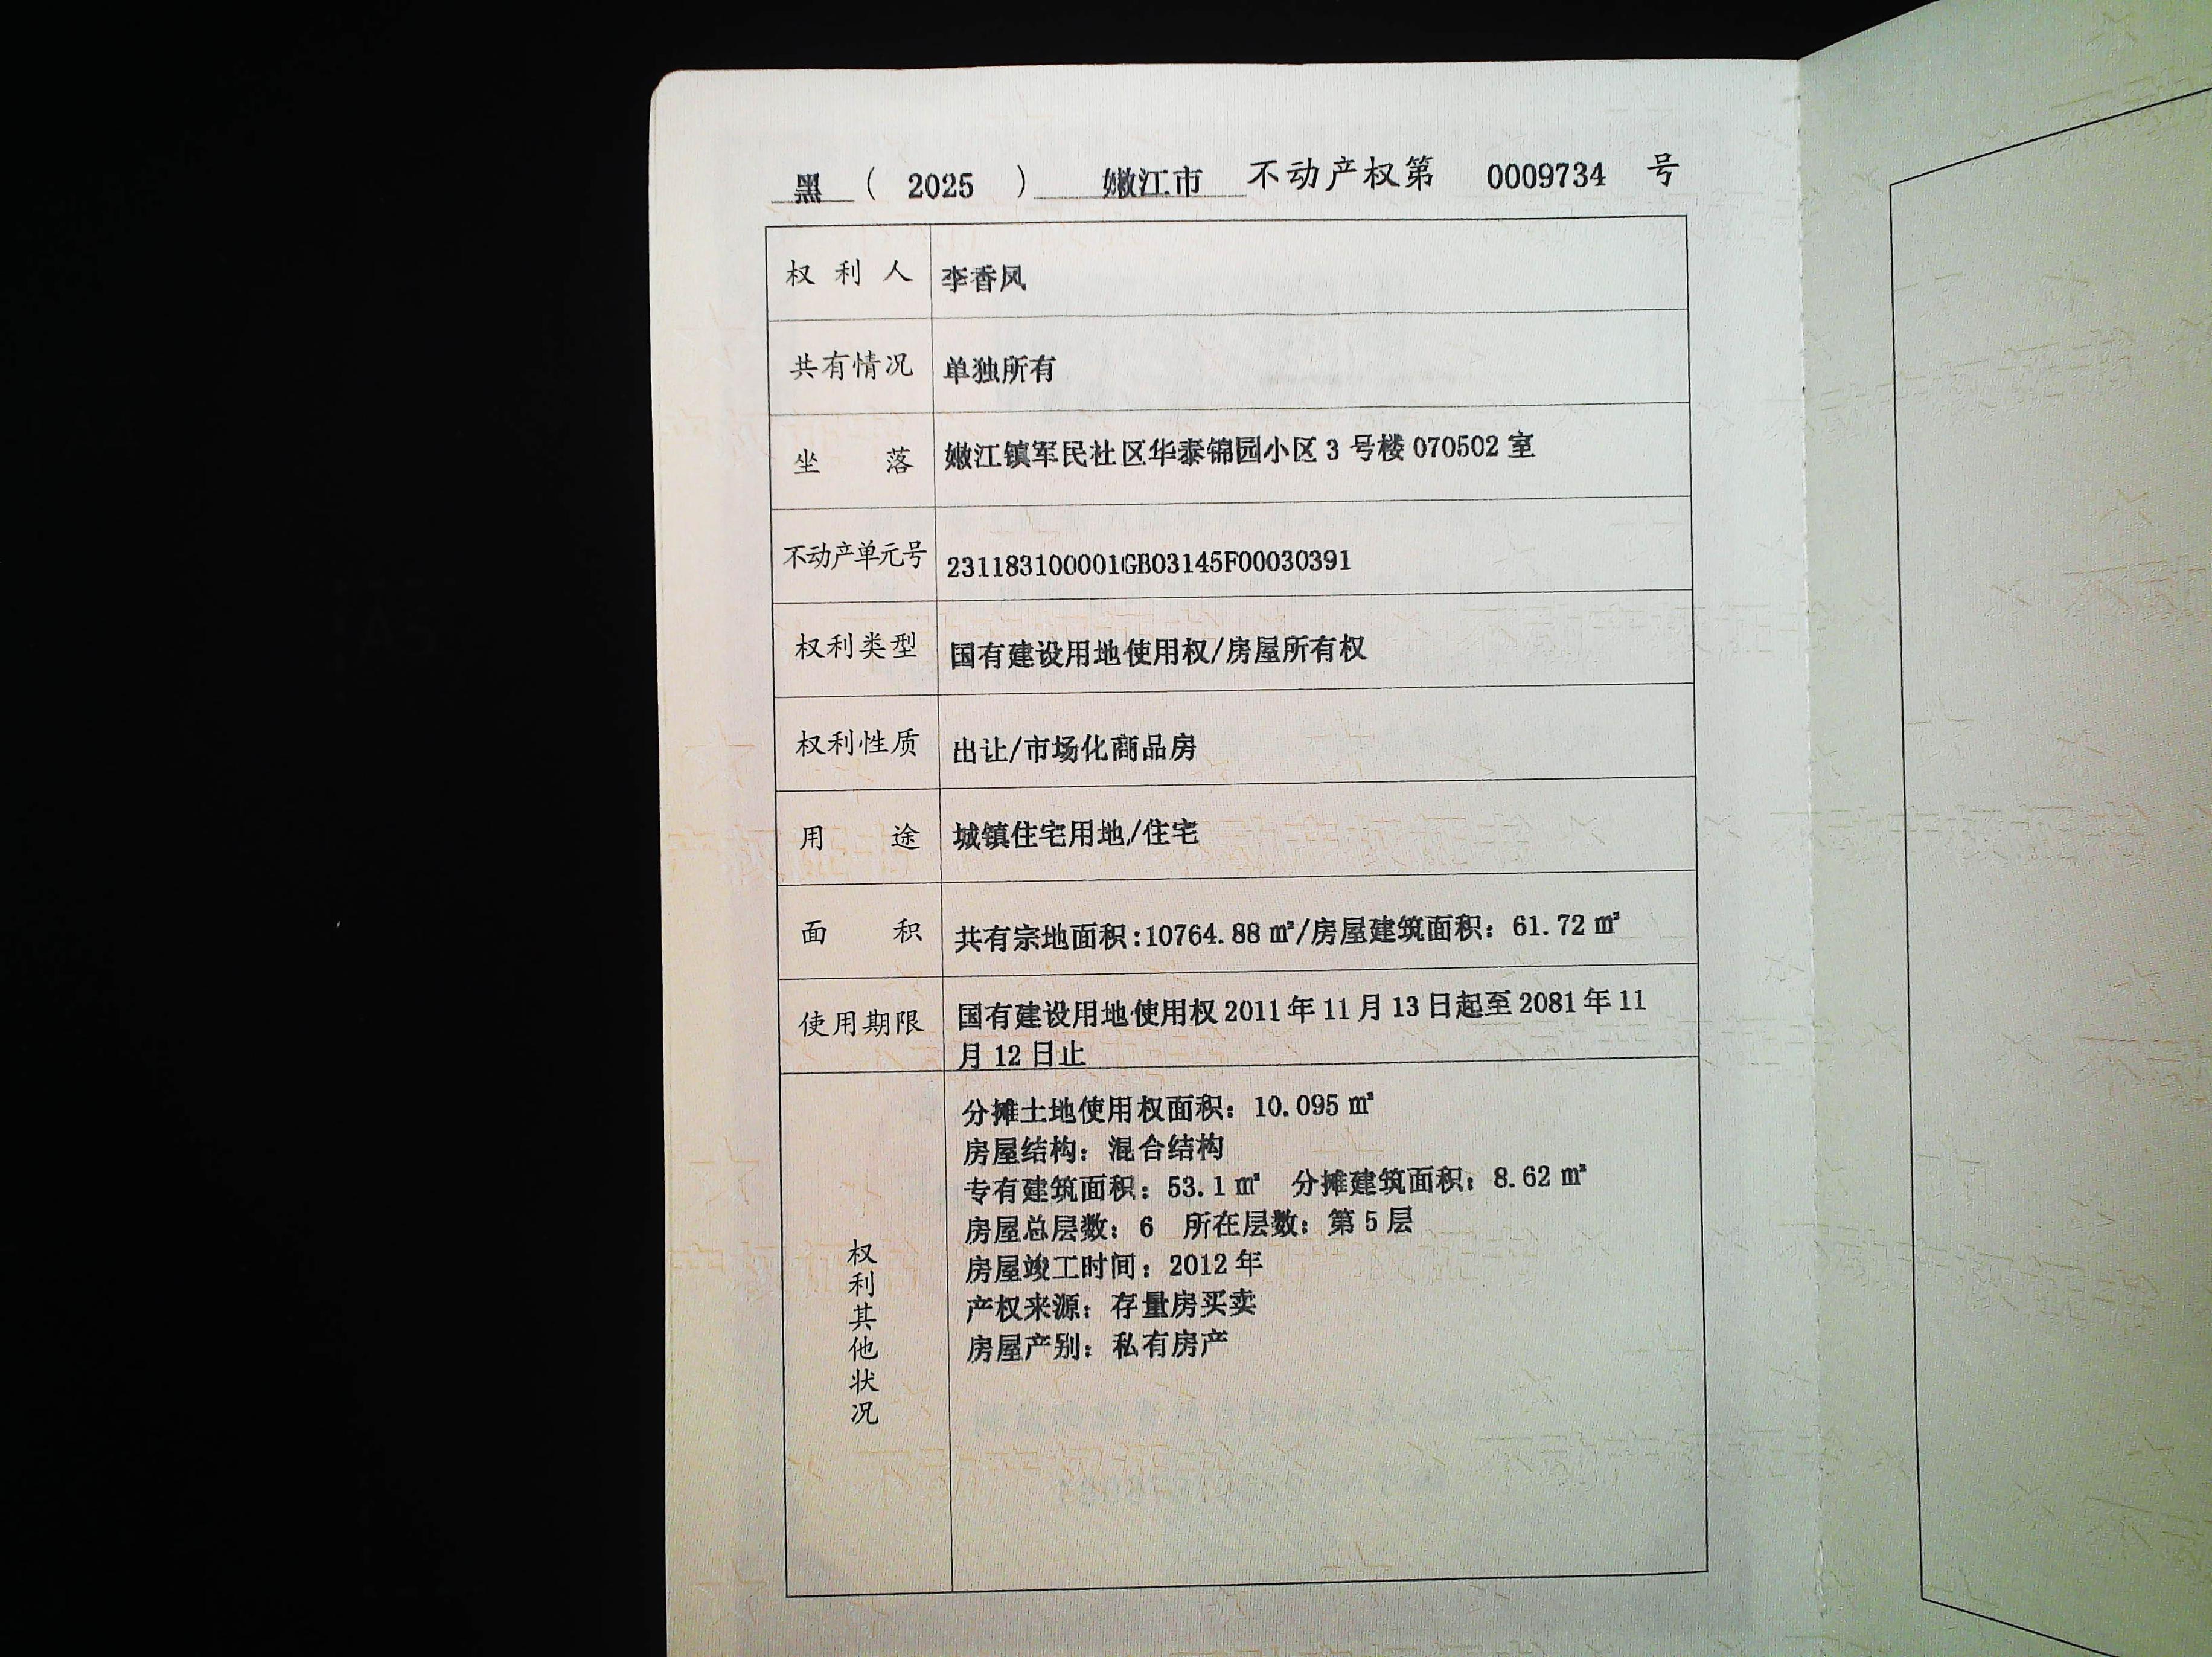 黑 ( 2025 ) 嫩江市 不动产权第 0009734 号
权利人 李香风
共有情况 单独所有
坐落 嫩江镇军民社区华泰锦园小区 3 号楼 070502 室
不动产单元号 231183100001GB03145F00030391
权利类型 国有建设用地使用权/房屋所有权
权利性质 出让/市场化商品房
用途 城镇住宅用地/住宅
面积 共有宗地面积:10764.88 ㎡/房屋建筑面积: 61.72 ㎡
使用期限 国有建设用地使用权 2011 年 11 月 13 日起至 2081 年 11
月 12 日止
权利其他状况
分摊土地使用权面积: 10.095 ㎡
房屋结构: 混合结构
专有建筑面积: 53.1 ㎡ 分摊建筑面积: 8.62 ㎡
房屋总层数: 6 所在层数: 第 5 层
房屋竣工时间: 2012 年
产权来源: 存量房买卖
房屋产别: 私有房产